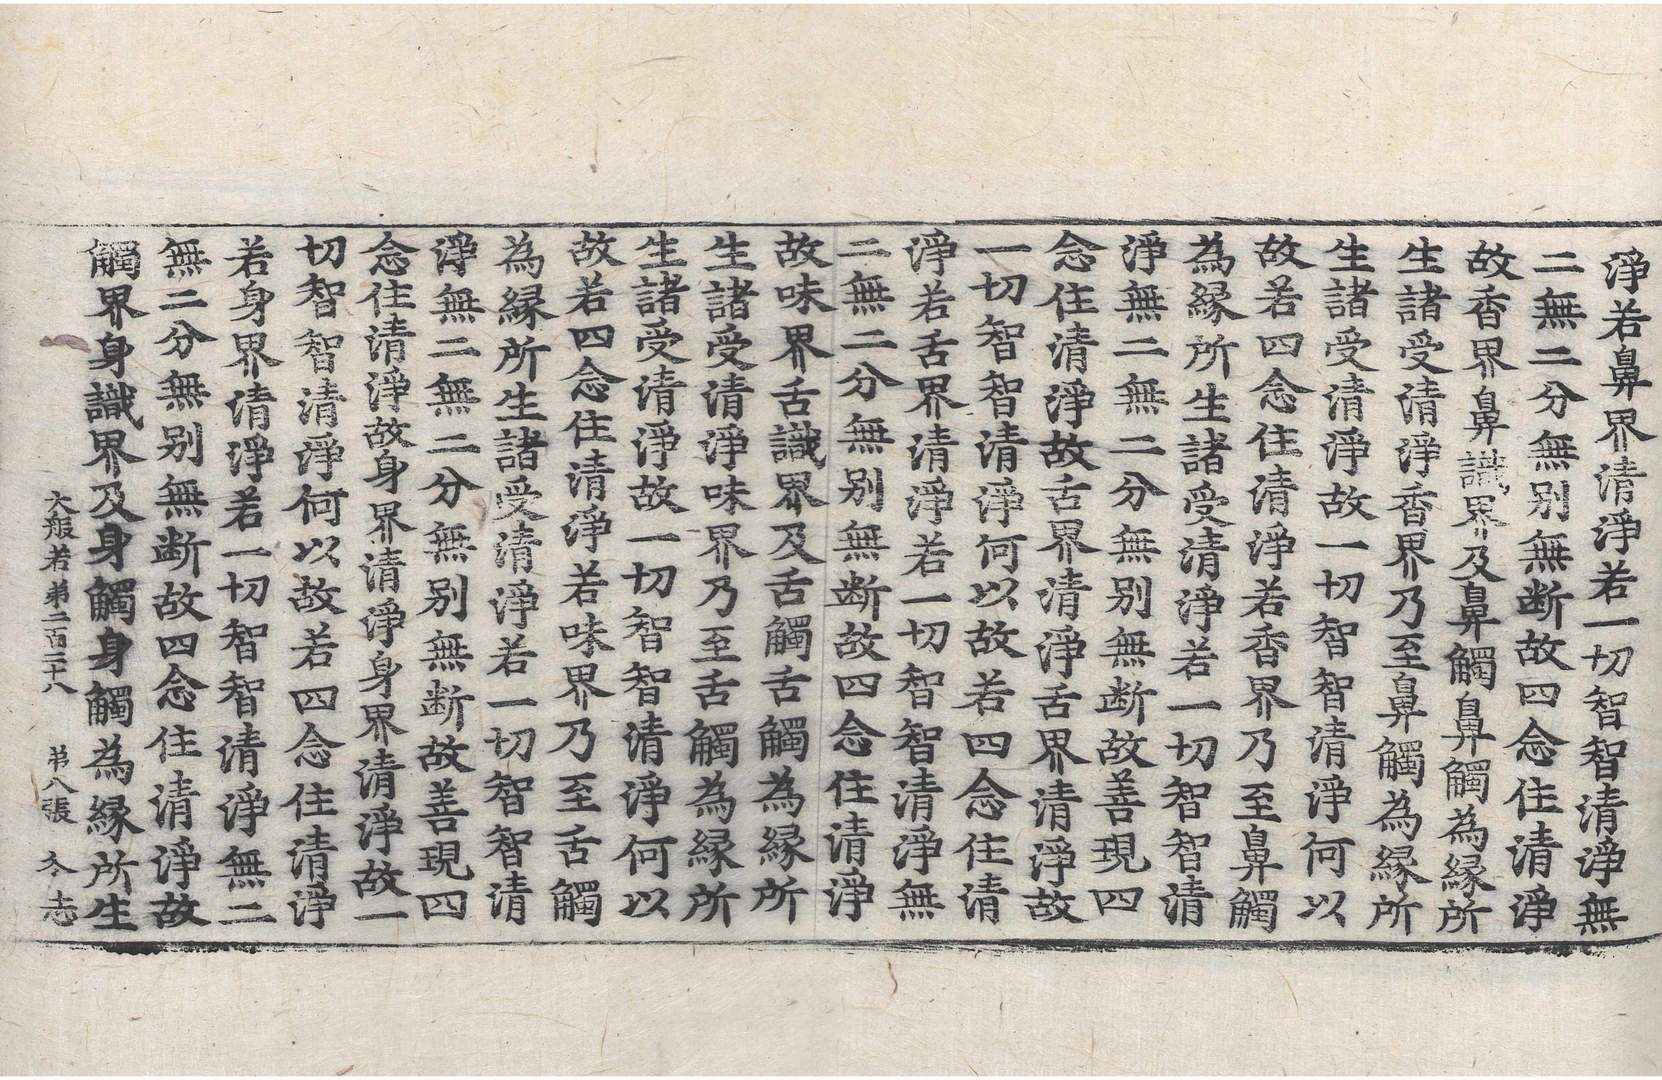 淨若鼻界清淨若一切智智清淨無
二無二分無別無断故四念住清淨
故香界鼻識界及鼻觸鼻觸為縁所
生諸受清淨香界乃至鼻觸為縁所
生諸受清淨故一切智智清淨何以
故若四念住清淨若香界乃至鼻觸
為縁所生諸受清淨若一切智智清
淨無二無二分無別無断故善現四
念住清淨故舌界清淨舌界清淨故
一切智智清淨何以故若四念住清
淨若舌界清淨若一切智智清淨無
二無二分無別無断故四念住清淨
故味界舌識界及舌觸舌觸為縁所
生諸受清淨味界乃至舌觸為縁所
生諸受清淨故一切智智清淨何以
故若四念住清淨若味界乃至舌觸
為縁所生諸受清淨若一切智智清
淨無二無二分無別無断故善現四
念住清淨故身界清淨身界清淨故一
切智智清淨何以故若四念住清淨
若身界清淨若一切智智清淨無二
無二分無別無断故四念住清淨故
觸界身識界及身觸身觸為縁所生
大般若第二百三十八 第八張 志